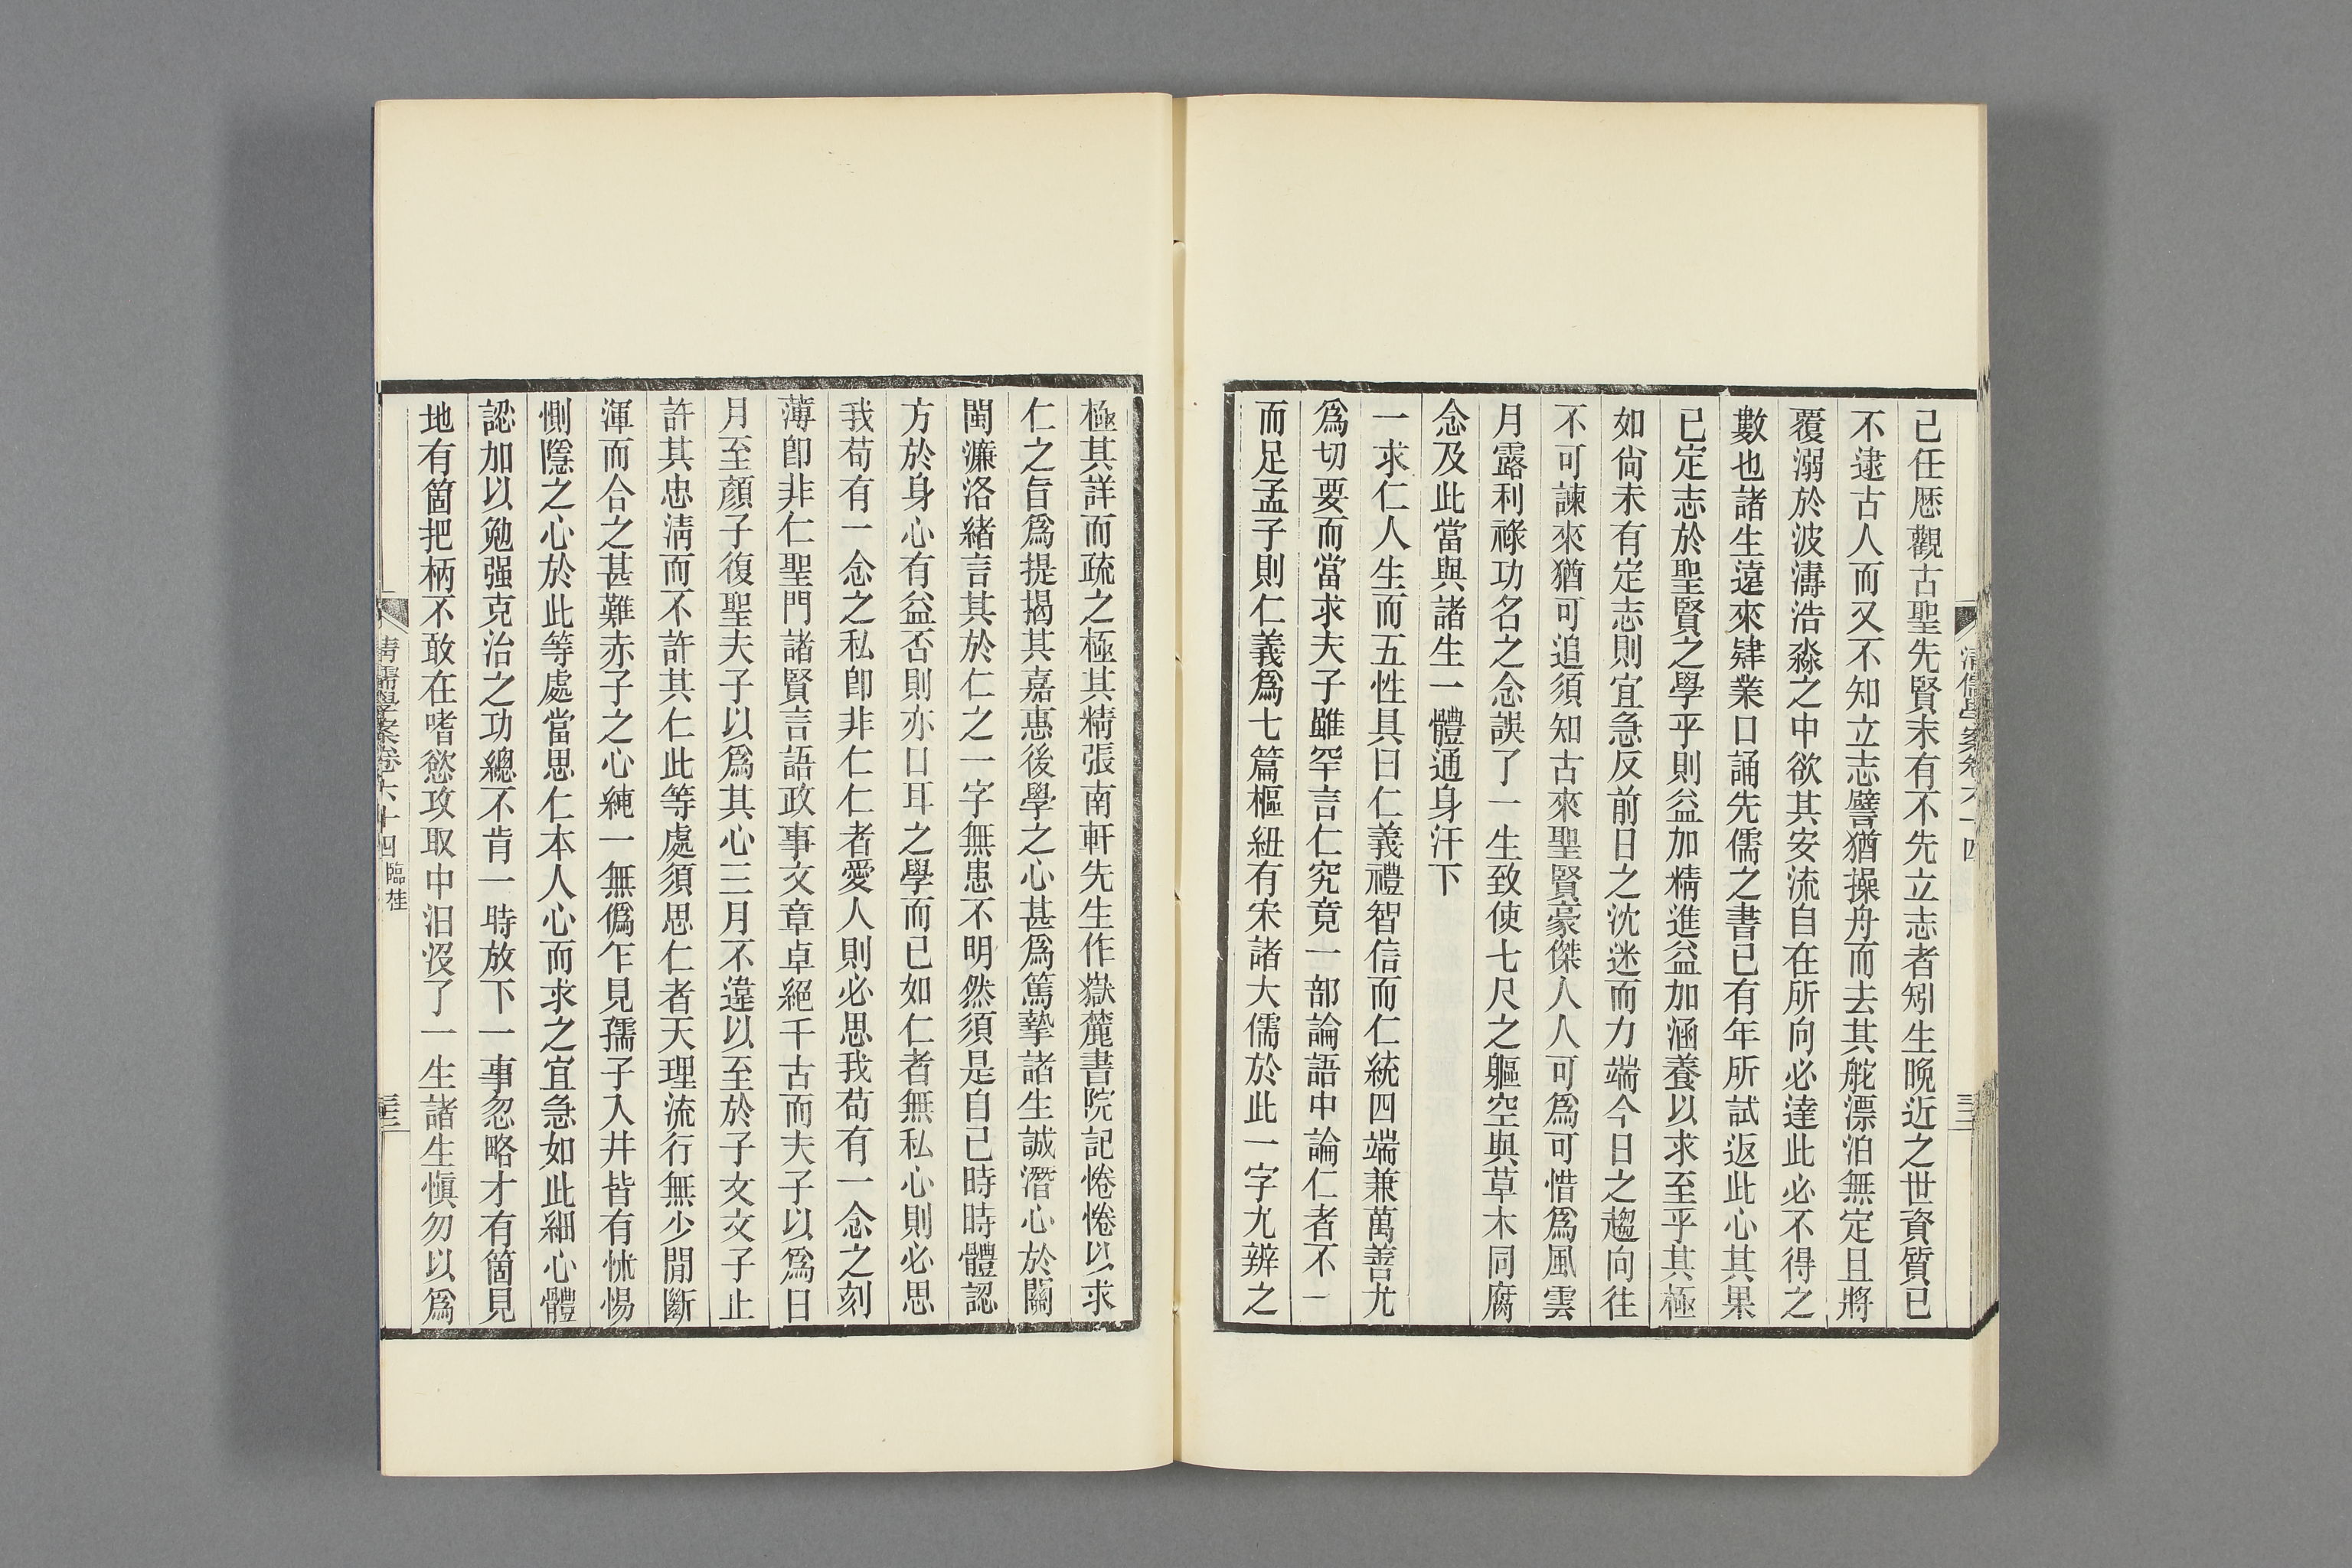 己任歷觀古聖先賢未有不先立志者矧生晚近之世資質已
不逮古人而又不知立志譬猶操舟而去其舵漂泊無定且將
覆溺於波濤浩淼之中欲其安流自在所向必達此必不得之
數也諸生遠來肄業口誦先儒之書已有年所試返此心其果
已定志於聖賢之學乎則益加精進益加涵養以求至乎其極
如尙未有定志則宜急反前日之沈迷而力端今日之趨向往
不可諫來猶可追須知古來聖賢豪傑人人可爲可惜爲風雲
月露利祿功名之念誤了一生致使七尺之軀空與草木同腐
念及此當與諸生一體通身汗下
一求仁人生而五性具曰仁義禮智信而仁統四端兼萬善尤
爲切要而當求夫子雖罕言仁究竟一部論語中論仁者不一
而足孟子則仁義爲七篇樞紐有宋諸大儒於此一字尤辨之
清儒學案卷六十四
三三
極其詳而疏之極其精張南軒先生作嶽麓書院記惓惓以求
仁之旨爲提揭其嘉惠後學之心甚爲篤摯諸生誠潛心於關
閩濂洛緒言其於仁之一字無患不明然須是自己時時體認
方於身心有益否則亦口耳之學而已如仁者無私心則必思
我苟有一念之私卽非仁仁者愛人則必思我苟有一念之刻
薄卽非仁聖門諸賢言語政事文章卓絕千古而夫子以爲日
月至顏子復聖夫子以爲其心三月不違以至於子文文子止
許其忠淸而不許其仁此等處須思仁者天理流行無少閒斷
渾而合之甚難赤子之心純一無僞乍見孺子入井皆有怵惕
惻隱之心於此等處當思仁本人心而求之宜急如此細心體
認加以勉强克治之功總不肯一時放下一事忽略才有箇見
地有箇把柄不敢在嗜慾攻取中汨沒了一生諸生愼勿以爲
清儒學案卷六十四 臨桂
三三